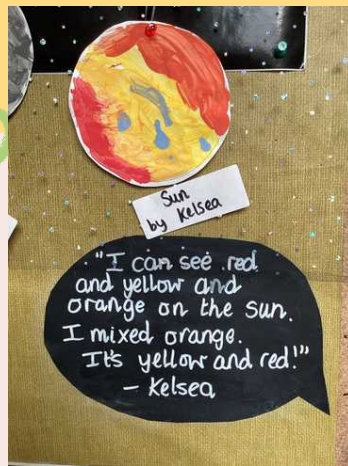 Sun
by Kelsea
"I can see red
and yellow and
orange on the sun.
I mixed orange.
It's yellow and red!"
- Kelsea